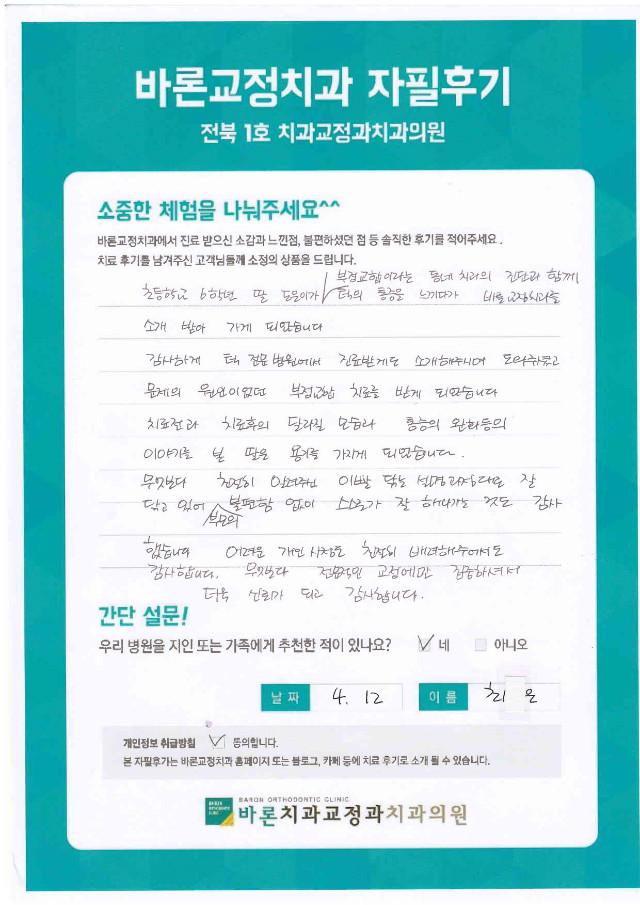 바론교정치과 자필후기
전북 1호 치과교정과치과의원
소중한 체험을 나눠주세요^^
바론교정치과에서 진료 받으신 소감과 느낀점, 불편하셨던 점 등 솔직한 후기를 적어주세요.
치료 후기를 남겨주신 고객님들께 소정의 상품을 드립니다.
부정교합이라는 동네 치과의 진단과 함께
초등학교 6학년 딸 턱의 통증을 느끼다가 바론교정치과를
소개 받아 가게 되었습니다
감사하게 턱 전문병원에서 진료받게도 소개해주시며 도와주셨고
문제의 원인이었던 부정교합 치료를 받게 되었습니다
치료전과 치료후의 달라질 모습과 통증의 완화등의
이야기를 딸은 용기를 가지게 되었습니다.
무엇보다 친절히 알려주신 이빨 닦는 설명 잘
닦고 있어 불편함 없이 스스로가 잘 해나가는 것도 감사
부모의
했습니다 어려운 개인 사정도 친절히 배려해주어서도
감사합니다. 무엇보다 전문적인 교정에만 집중하셔서
더욱 신뢰가 되고 감사합니다.
간단 설문!
우리 병원을 지인 또는 가족에게 추천한 적이 있나요? 네 아니오
날짜 4. 12 이름 최 은
개인정보 취급방침 동의합니다.
본 자필후기는 바론교정치과 홈페이지 또는 블로그, 카페 등에 치료 후기로 소개 될 수 있습니다.
BARON ORTHODONTIC CLINIC
바론치과교정과치과의원